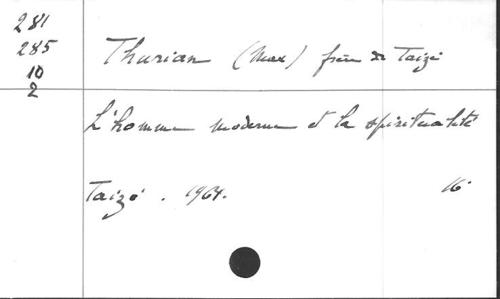 281
285
10
2
Thurian (Max) frère de Taizé
L'homme moderne et la spiritualité
Taizé . 1964. 16°